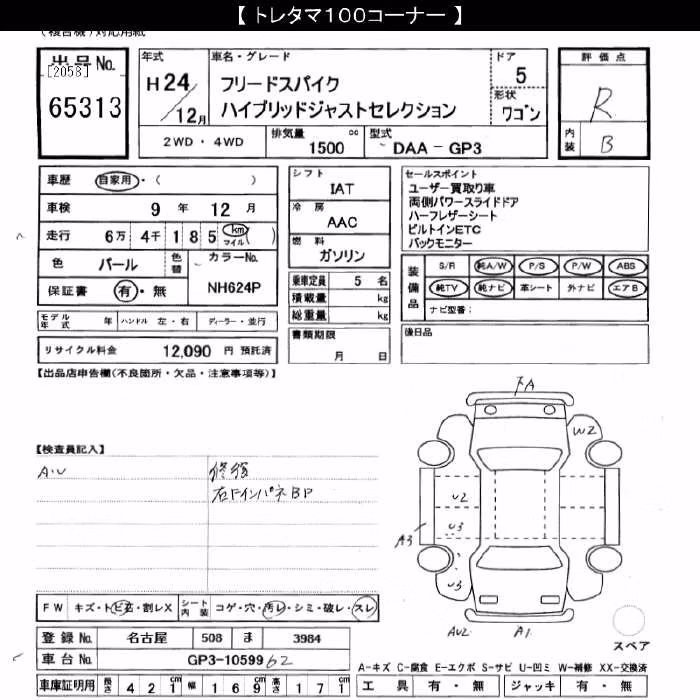 【 トレタマ100コーナー 】
出品No.
[2058]
65313
年式
H24/12月
車名・グレード
フリードスパイク
ハイブリッドジャストセレクション
ドア
5
形状
ワゴン
評価点
R
内装
B
2WD・4WD
排気量 1500 cc
型式 DAA－GP3
車歴 自家用・( )
車検 9年 12月
走行 6万 4千 1 8 5 km マイル ( )
色 パール
色替
カラーNo.
NH624P
保証書 有・無
モデル年式 年
ハンドル 左・右
ディーラー・並行
リサイクル料金 12,090 円 預託済
シフト
IAT
冷房
AAC
燃料
ガソリン
乗車定員 5 名
積載量 kg
総重量 kg
書類期限
月 日
セールスポイント
ユーザー買取り車
両側パワースライドドア
ハーフレザーシート
ビルトインETC
バックモニター
装備品
S/R 純A/W P/S P/W ABS
純TV 純ナビ 革シート 外ナビ エアB
ナビ型番：
後日品
【出品店申告欄(不良箇所・欠品・注意事項等)】
【検査員記入】
A・U
修復
右リインパネBP
下A
W2
U2
U3
A3
U3
AU2
A1
スペア
FW キズ・トビ石・割レX
シート内装 コゲ・穴・汚レ・シミ・破レ・スレ
登録No. 名古屋 508 ま 3984
車台No. GP3-1059962
車庫証明用 長さ 421cm 幅 169cm 高さ 171cm
A-キズ C-腐食 E-エクボ S-サビ U-凹ミ W-補修 XX-交換済
工具 有・無 ジャッキ 有・無